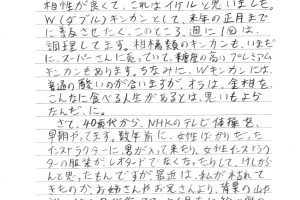 相性が良くて、これはイケルと思いました。
W(ダブル)キンカンとして、来年の正月まで
に普及させたく、このところ、週に1回は、
調理してます。柑橘類のキンカンも、いまだ
に、スーパーさんに売っていて、糖度の高いプレミアム
キンカンもあります。ちなみに、Wキンカンには、
普通の酸いのが合いますが、オラは、金柑を、
こんなに食べる人生があるとは、思いもよら
なんだ、に。
さて、40歳代から、NHKのテレビ体操を、
早朝やってます。数年前に、女性ばかりだった
インストラクターに、男が入って来たり、女性インストラク
ターの服装がレオタードでなくなったりして、けしから
んと思ったもんですが最近は、私が枯れて
きたのか、お姉さんやお兄さんより、背景の山や